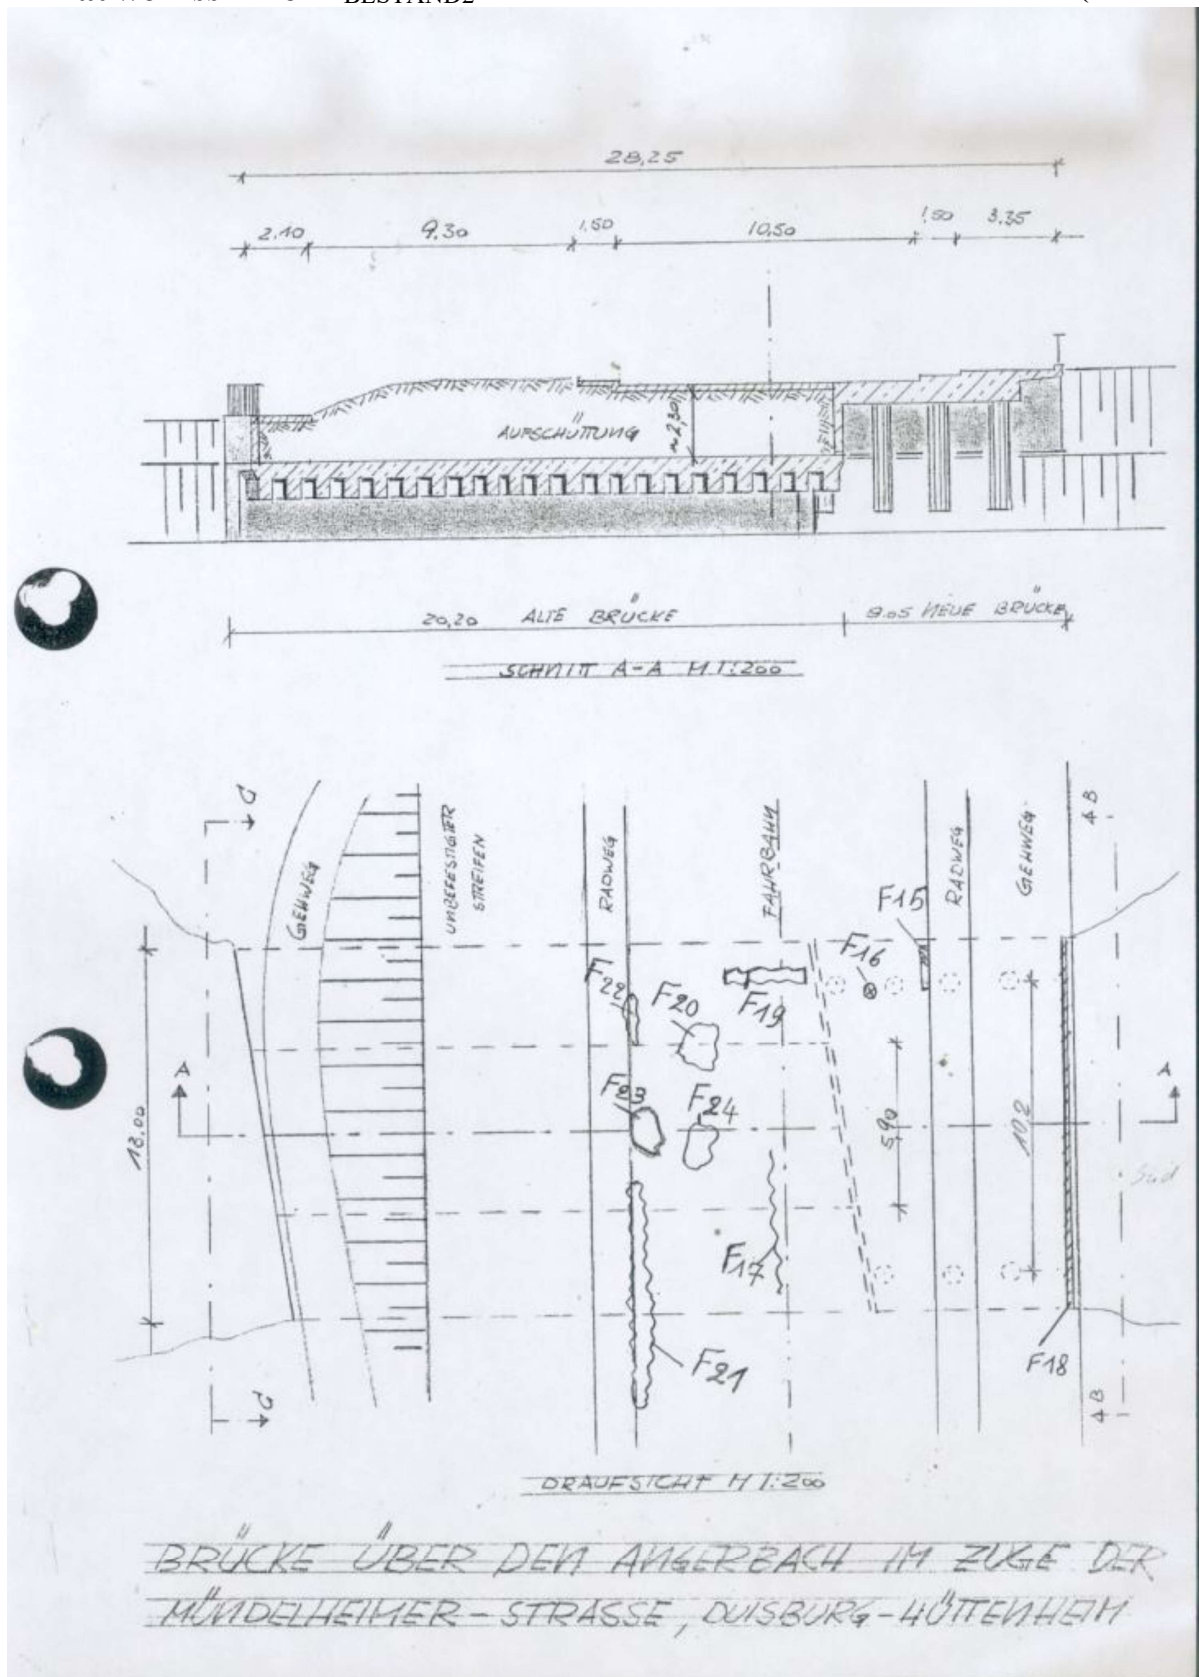 BESTAND2
28,25
2.10 9.30 1,50 10,50 1,50 3.35
AUFSCHÜTTUNG
~2,30
20,20 ALTE BRÜCKE
8.05 NEUE BRÜCKE
SCHNITT A-A M 1:200
GEHWEG
UNBEFESTIGTER
STREIFEN
RADWEG
FAHRBAHN
F15
RADWEG
GEHWEG
B
F16
F22
F20
F19
A
F23
F24
18,00
5,90
10,2
A
Süd
F17
F21
F18
B
DRAUFSICHT M 1:200
BRÜCKE ÜBER DEN ANGERBACH IM ZUGE DER
MÜNDELHEIMER-STRASSE, DUISBURG-HÜTTENHEIM